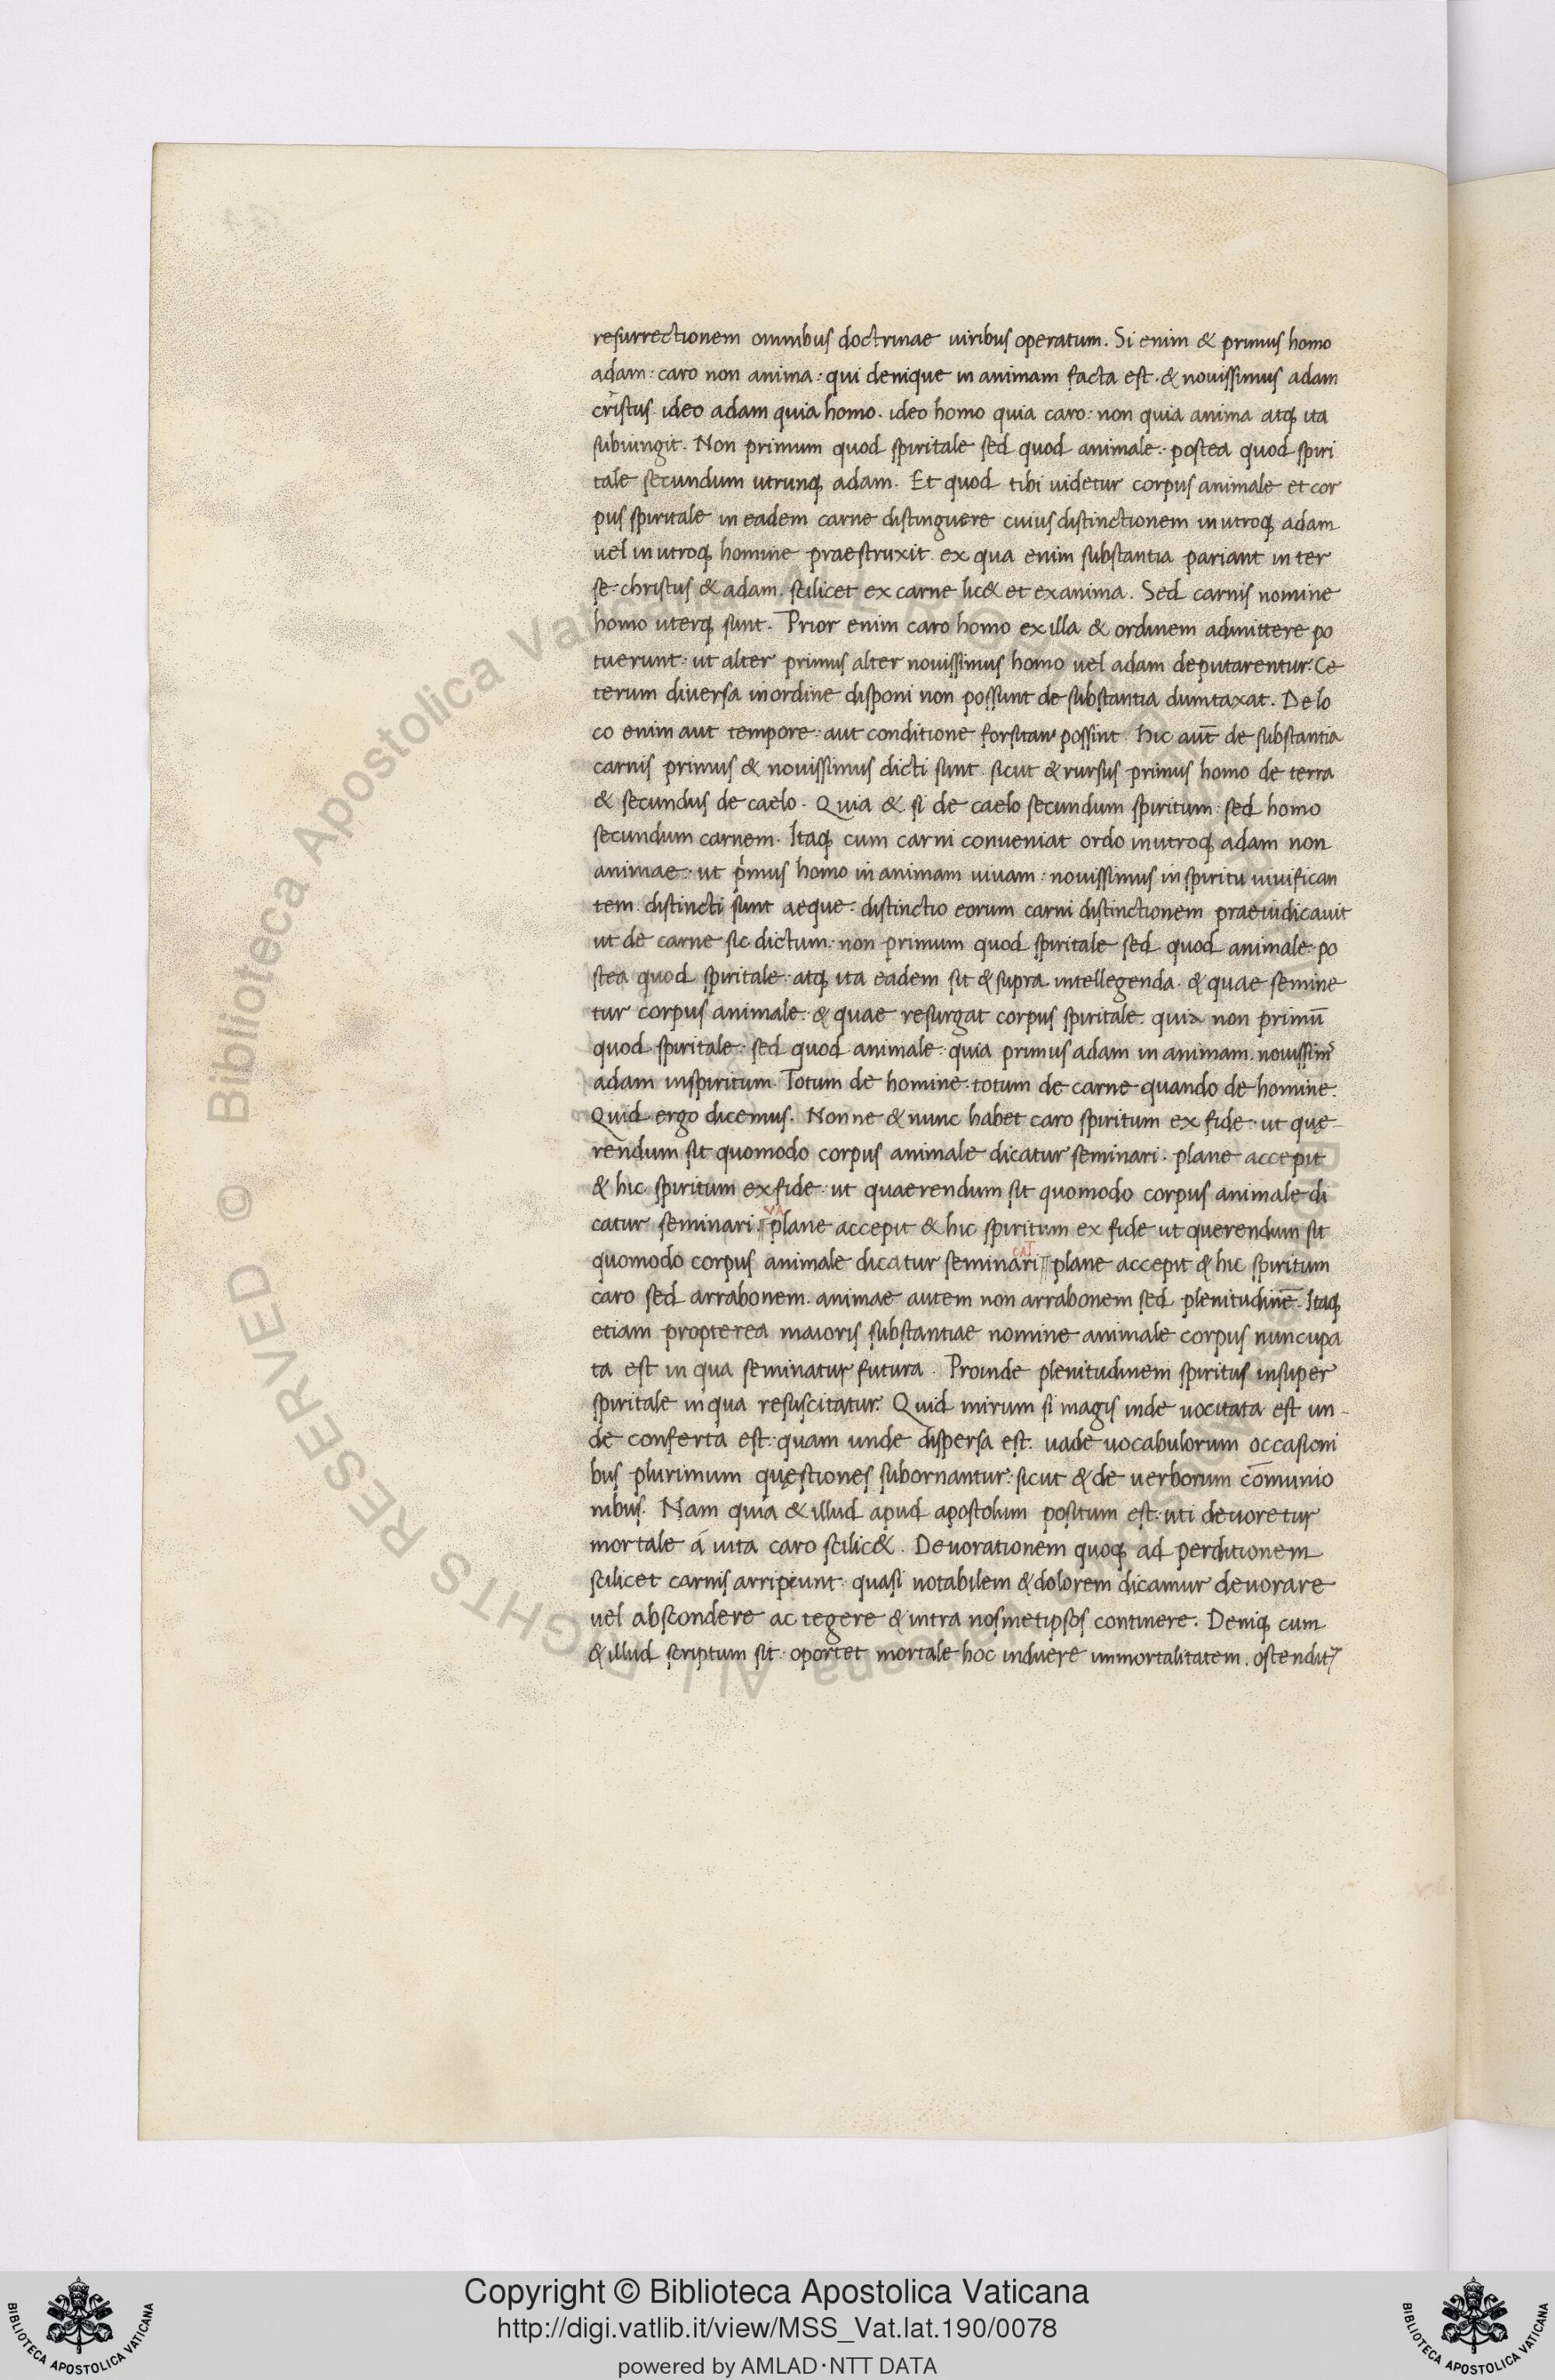 resurrectionem omnibus doctrinae uiribus operatum. Si enim & primus homo
adam: caro non anima: qui denique in animam facta est. & nouissimus adam
cristus. ideo adam quia homo. ideo homo quia caro: non quia anima atq; ita
subiungit. Non primum quod spiritale sed quod animale: postea quod spiri
tale secundum utrunq; adam. Et quod tibi uidetur corpus animale et cor
pus spiritale in eadem carne distinguere cuius distinctionem in utroq; adam
uel in utroq; homine praestruxit. ex qua enim substantia pariant in ter
se. christus & adam. scilicet ex carne lic& et ex anima. Sed carnis nomine
homo uterq; sunt. Prior enim caro homo ex illa & ordinem admittere po
tuerunt: ut alter primus alter nouissimus homo uel adam deputarentur. Ce
terum diuersa in ordine disponi non possunt de substantia dumtaxat. De lo
co enim aut tempore: aut conditione forsitan possint. hic aut̄ de substantia
carnis primus & nouissimus dicti sunt. sicut & rursus primus homo de terra
& secundus de caelo. Quia & si de caelo secundum spiritum: sed homo
secundum carnem. Itaq; cum carni conueniat ordo in utroq; adam non
animae: ut p̓mus homo in animam uiuam: nouissimus in spiritu uiuifican
tem. distincti sunt aeque. distinctio eorum carni distinctionem praeiudicauit
ut de carne sic dictum. non primum quod spiritale sed quod animale. po
stea quod spiritale: atq; ita eadem sit & supra intellegenda. & quae semine
tur corpus animale: & quae resurgat corpus spiritale. quia non primū
quod spiritale: sed quod animale. quia primus adam in animam. nouissim᾽
adam in spiritum. Totum de homine. totum de carne quando de homine.
Quid ergo dicemus. Nonne & nunc habet caro spiritum ex fide. ut quę-
rendum sit quomodo corpus animale dicatur seminari. plane accepit
& hic spiritum ex fide. ut quaerendum sit quomodo corpus animale di
VA
catur seminari. plane accepit & hic spiritum ex fide ut querendum sit
CAT
quomodo corpus animale dicatur seminari plane accepit & hic spiritum
caro sed arrabonem. animae autem non arrabonem sed plenitudinē. Itaq;
etiam propterea maioris substantiae nomine animale corpus nuncupa
ta est in qua seminatur futura. Proinde plenitudinem spiritus insuper
spiritale in qua resuscitatur. Quid mirum si magis inde uocitata est un-
de conferta est: quam unde dispersa est. uade uocabulorum occasioni
bus plurimum quęstiones subornantur: sicut & de uerborum cōmunio
nibus. Nam quia & illud apud apostolum positum est: uti deuoretur
mortale á uita caro scilic&. Deuorationem quoq; ad perditionem
scilicet carnis arripiunt. quasi notabilem & dolorem dicamur deuorare
uel abscondere ac tegere & intra nosmetipsos continere. Deniq; cum
& illud scriptum sit. oportet mortale hoc induere immortalitatem. ostendit᷑
© Biblioteca Apostolica Vaticana ALL RIGHTS RESERVED
Copyright © Biblioteca Apostolica Vaticana
http://digi.vatlib.it/view/MSS_Vat.lat.190/0078
powered by AMLAD·NTT DATA
BIBLIOTECA APOSTOLICA VATICANA
BIBLIOTECA APOSTOLICA VATICANA